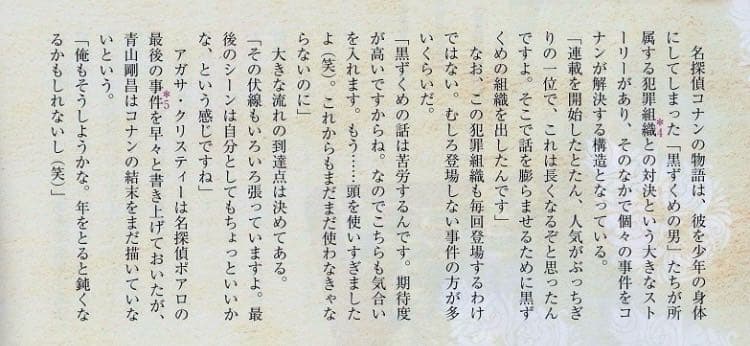 名探偵コナンの物語は、彼を少年の身体
にしてしまった「黒ずくめの男」たちが所
属する犯罪組織*4との対決という大きなスト
ーリーがあり、そのなかで個々の事件をコ
ナンが解決する構造となっている。
「連載を開始したとたん、人気がぶっちぎ
りの一位で、これは長くなるぞと思ったん
ですよ。そこで話を膨らませるために黒ず
くめの組織を出したんです」
なお、この犯罪組織も毎回登場するわけ
ではない。むしろ登場しない事件の方が多
いくらいだ。
「黒ずくめの話は苦労するんです。期待度
が高いですからね。なのでこちらも気合い
を入れます。もう……頭を使いすぎました
よ（笑）。これからもまだまだ使わなきゃな
らないのに」
大きな流れの到達点は決めてある。
「その伏線もいろいろ張っていますよ。最
後のシーンは自分としてもちょっといいか
な、という感じですね」
アガサ・クリスティーは名探偵ポアロの
最後の事件*5を早々と書き上げておいたが、
青山剛昌はコナンの結末をまだ描いていな
いという。
「俺もそうしようかな。年をとると鈍くな
るかもしれないし（笑）」